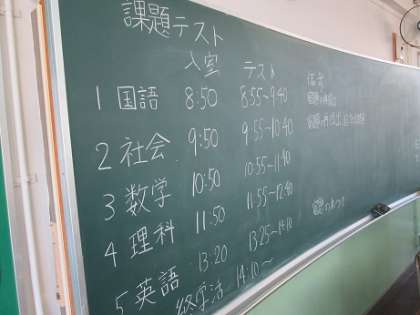 課題テスト
入室 テスト
1 国語 8:50 8:55~9:40
2 社会 9:50 9:55~10:40
3 数学 10:50 10:55~11:40
4 理科 11:50 11:55~12:40
5 英語 13:20 13:25~14:10
終学活 14:10~